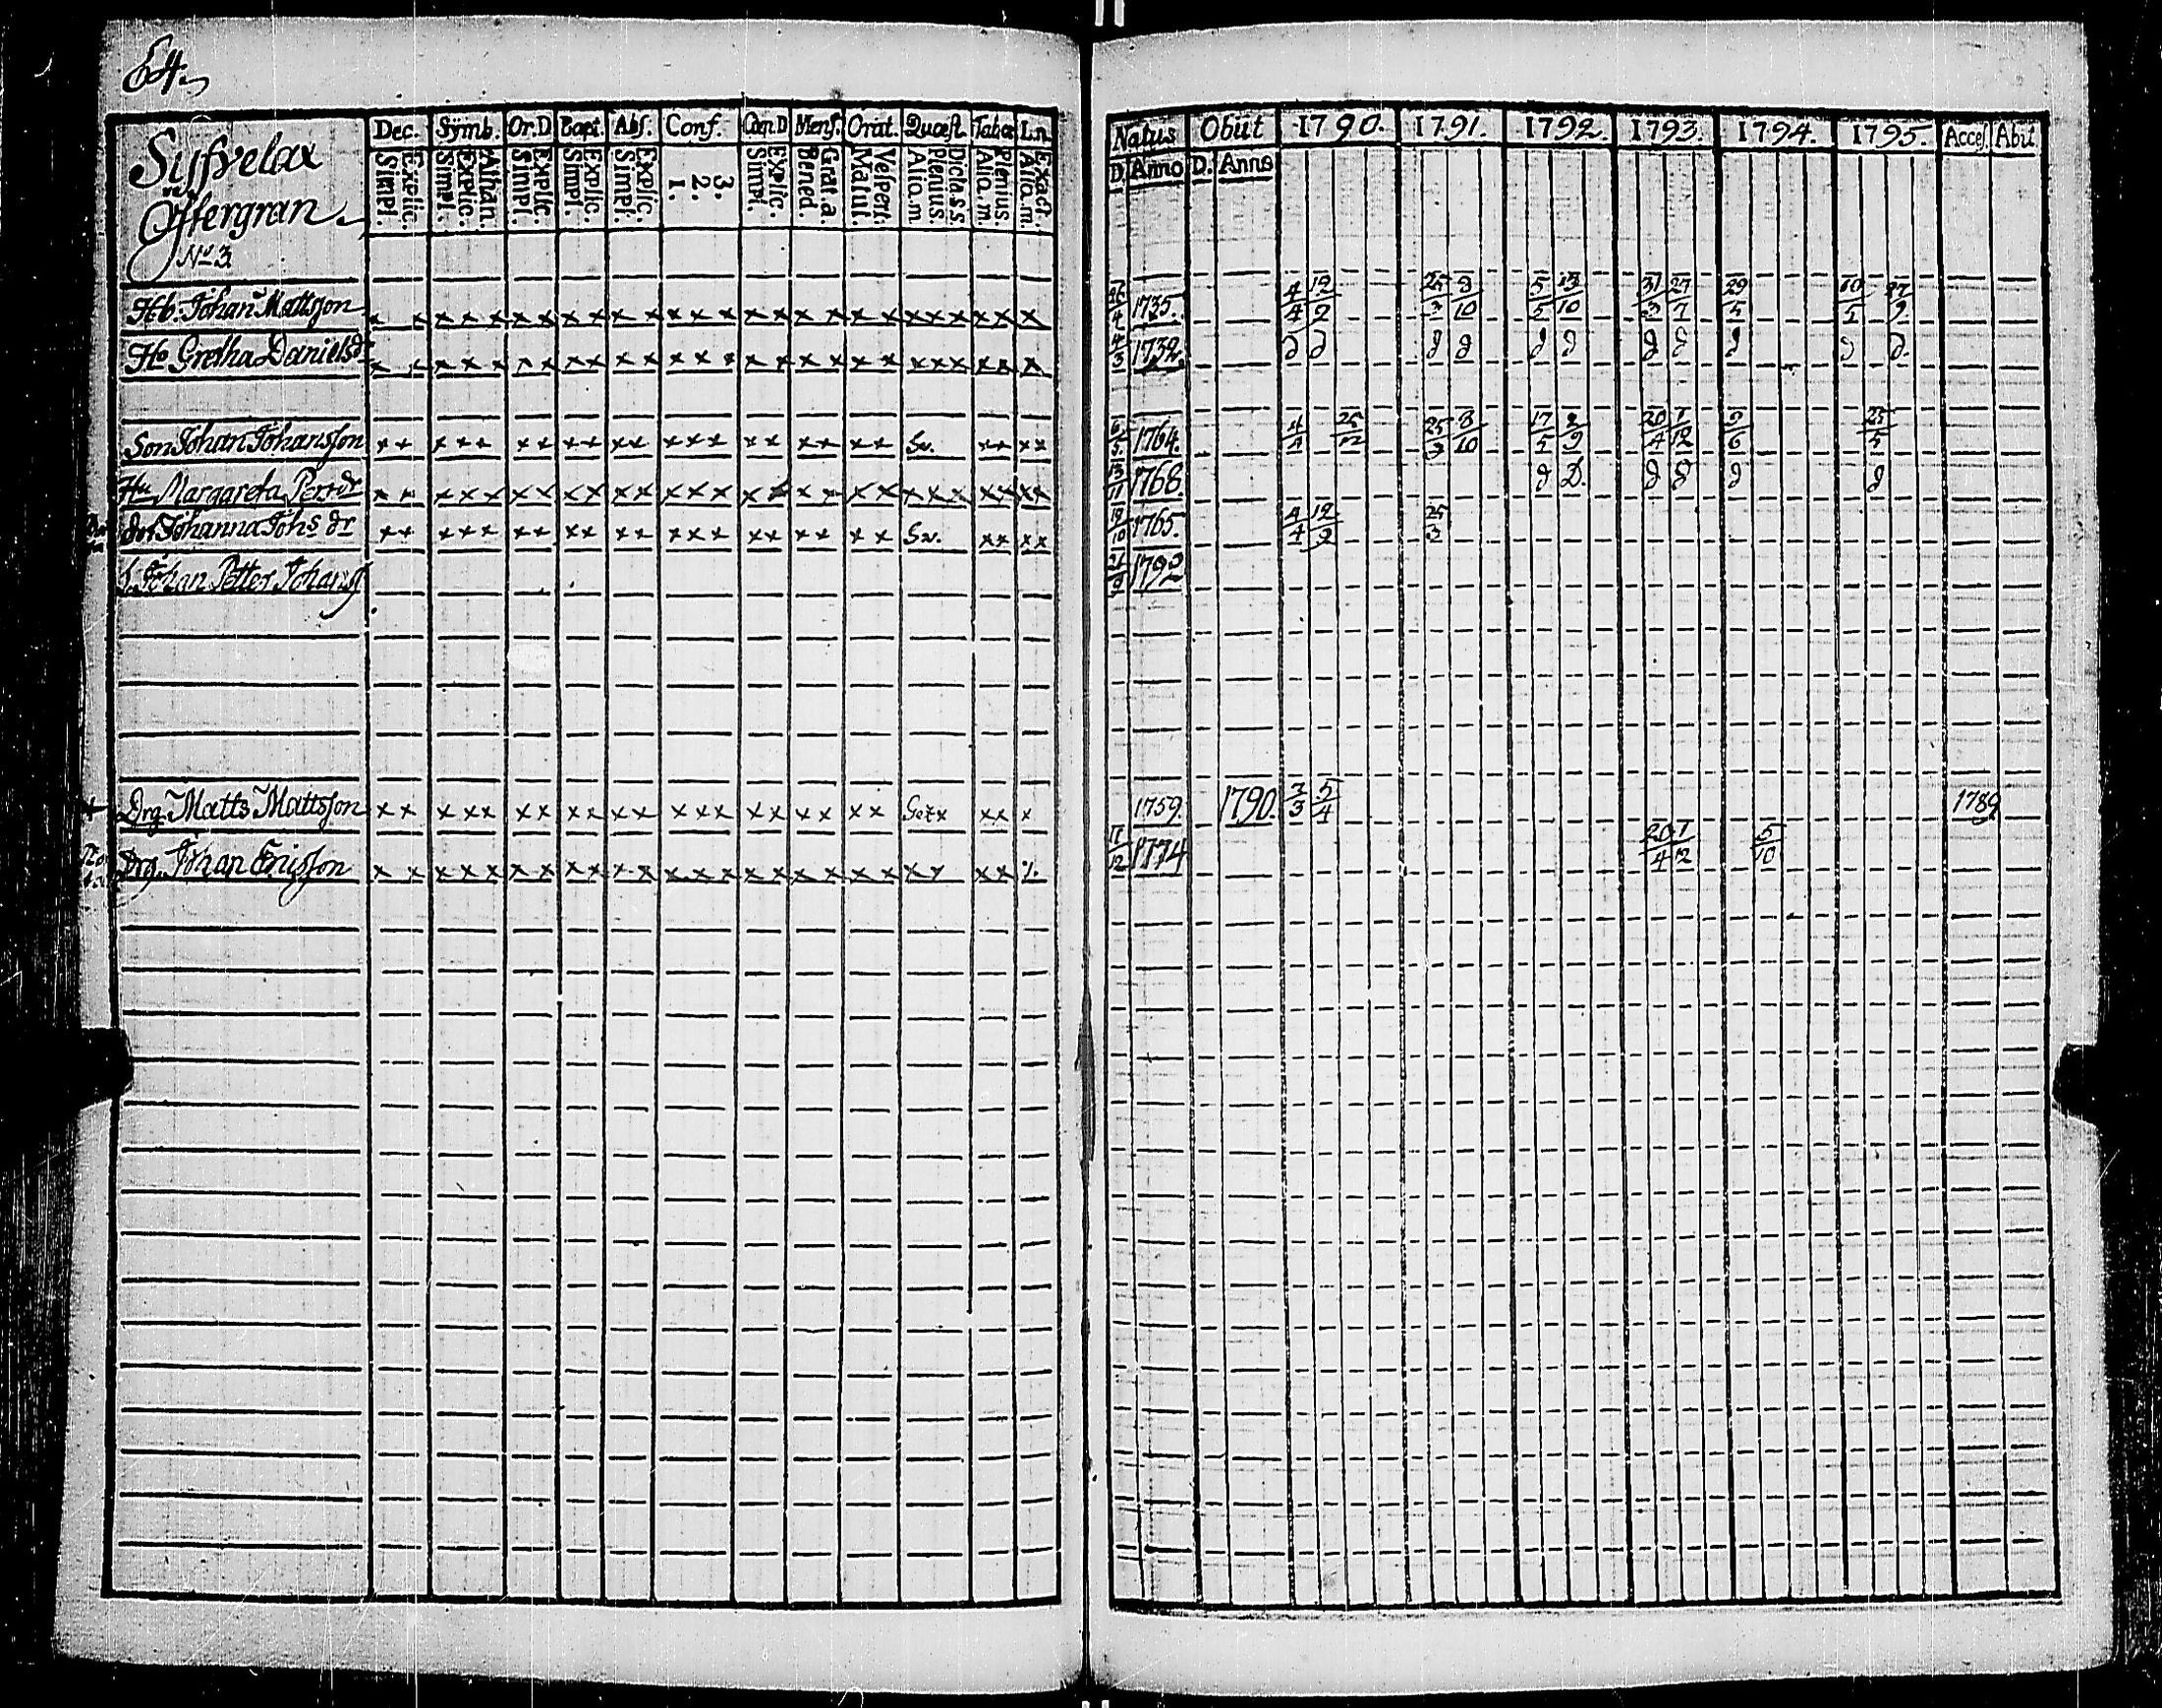 64.
Syssvelax
Öffergran
No 3
Dec. Symb. Or.D Bapt. Abs. Conf. Cœn.D Mens. Orat. Quæst. Tabæ Ln
Simpl. Explic. Simpl. Explic. Athan. Simpl. Explic. Simpl. Explic. Simpl. Explic. 1. 2. 3. Simpl. Explic. Bened. Grat.a Matut. Vespert. Aliq.m Plenius. Dicta.s.s. Aliq.m. Plenius. Aliq.m. Exact.
Natus Obiit 1790. 1791. 1792. 1793. 1794. 1795. Acces. Abit
D. Anno D. Anno
Hb. Johan Mattsson x x x x x x x x x x x x x x x x x x x x x x x x x x 1735. 4/4 12/9 25/3 9/10 5/5 13/10 31/3 27/7 29/5 10/5 27/9
Ho Gretha Danielsdr x x x x x x x x x x x x x x x x x x x x x x x x x x 4/3 1732. d d d d d d d d d d d.
Son Johan Johansson x x x x x x x x x x x x x x x x x x x x Sv. x x x x 6/5 1764. 4/4 25/3 8/10 17/5 2/9 20/4 1/12 9/6 25/5
Hu Margareta Persdr x x x x x x x x x x x x x x x x x x x x x x x x x x x 13/11 1768. d D. d d d d
dot Johanna Johs dr x x x x x x x x x x x x x x x x x x x x Sv. x x x x 19/10 1765. 4/4 12/9 25/3
S. Johan Petter Johanss 1792
+ Drg. Matts Mattsson x x x x x x x x x x x x x x x x x x x x x x x 1759. 1790. 3/3 5/4 1789
Drg. Johan Ericsson x x x x x x x x x x x x x x x x x x x x x x x x 17/12 1774 20/4 1/12 5/10